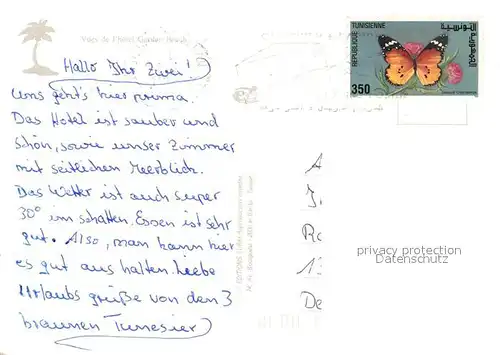 Vues de l'hôtel Garden Beach
Hallo Ihr Zwei!
Uns geht's hier prima.
Das Hotel ist sauber und
schön, sowie unser Zimmer
mit seitlichen Meerblick.
Das Wetter ist auch super
30° im schatten. Essen ist sehr
gut. Also, man kann hier
es gut aus halten. Liebe
Urlaubs grüße von den 3
braunen Tunesier
REPUBLIQUE TUNISIENNE
الجمهورية التونسية
350
A
J
Ro
13
De
privacy protection
Datenschutz